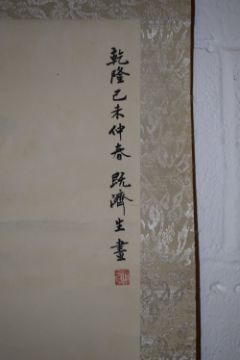 乾隆己未仲春既濟生畫